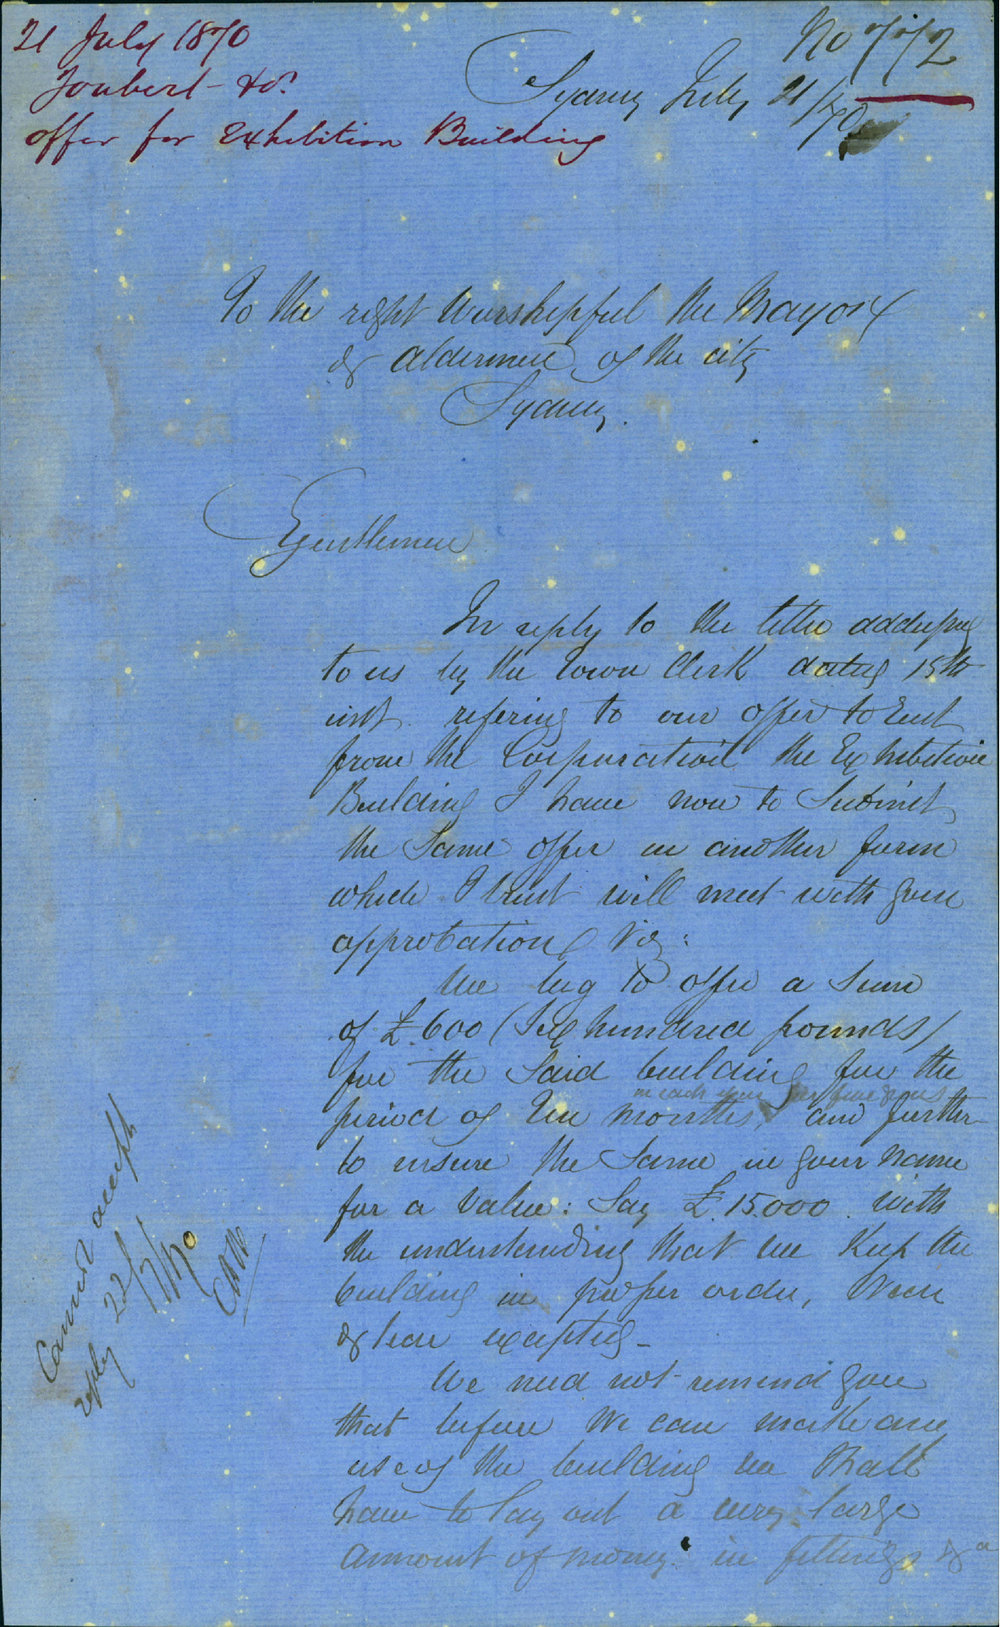 21 July 1870
Joubert & Co.
offer for Exhibition Building
No 772
Sydney July 21/70
To the right Worshipful the Mayor
& Aldermen of the city
Sydney.
Gentlemen
In reply to the letter addressed
to us by the Town Clerk dated 15th
inst. refering to our offer to rent
from the Corporation the Exhibition
Building I have now to submit
the same offer in another form
which I trust will meet with your
approbation Viz:
We beg to offer a sum
of £600 (Six hundred pounds)
for the said building for the
in each year for five years
period of ten months, and further
to insure the same in your name
for a value: say £15000 with
the understanding that we Keep the
building in proper order, Wear
& tear excepted_
We need not remind you
that before We can make any
use of the building we shall
have to lay out a very large
amount of money in fittings &a
Cannot accept
reply 22/7/70